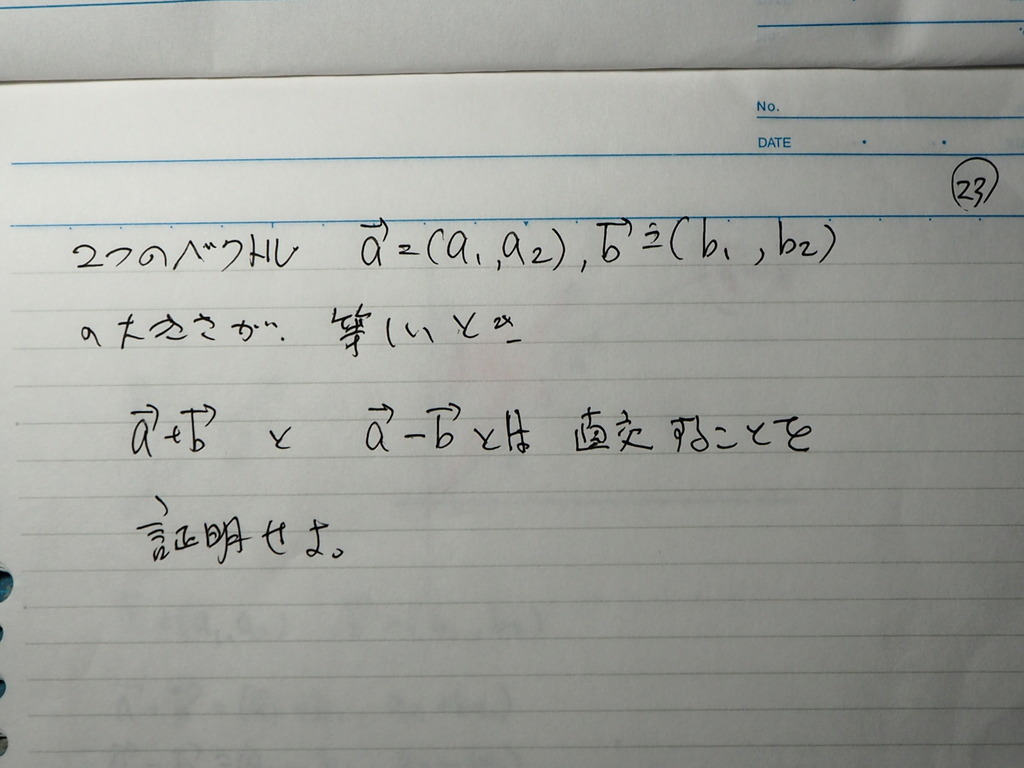 No.
DATE
23
2つのベクトル a⃗=(a₁,a₂), b⃗=(b₁,b₂)
の大きさが、等しいとき
a⃗+b⃗ と a⃗-b⃗とは 直交することを
証明せよ。